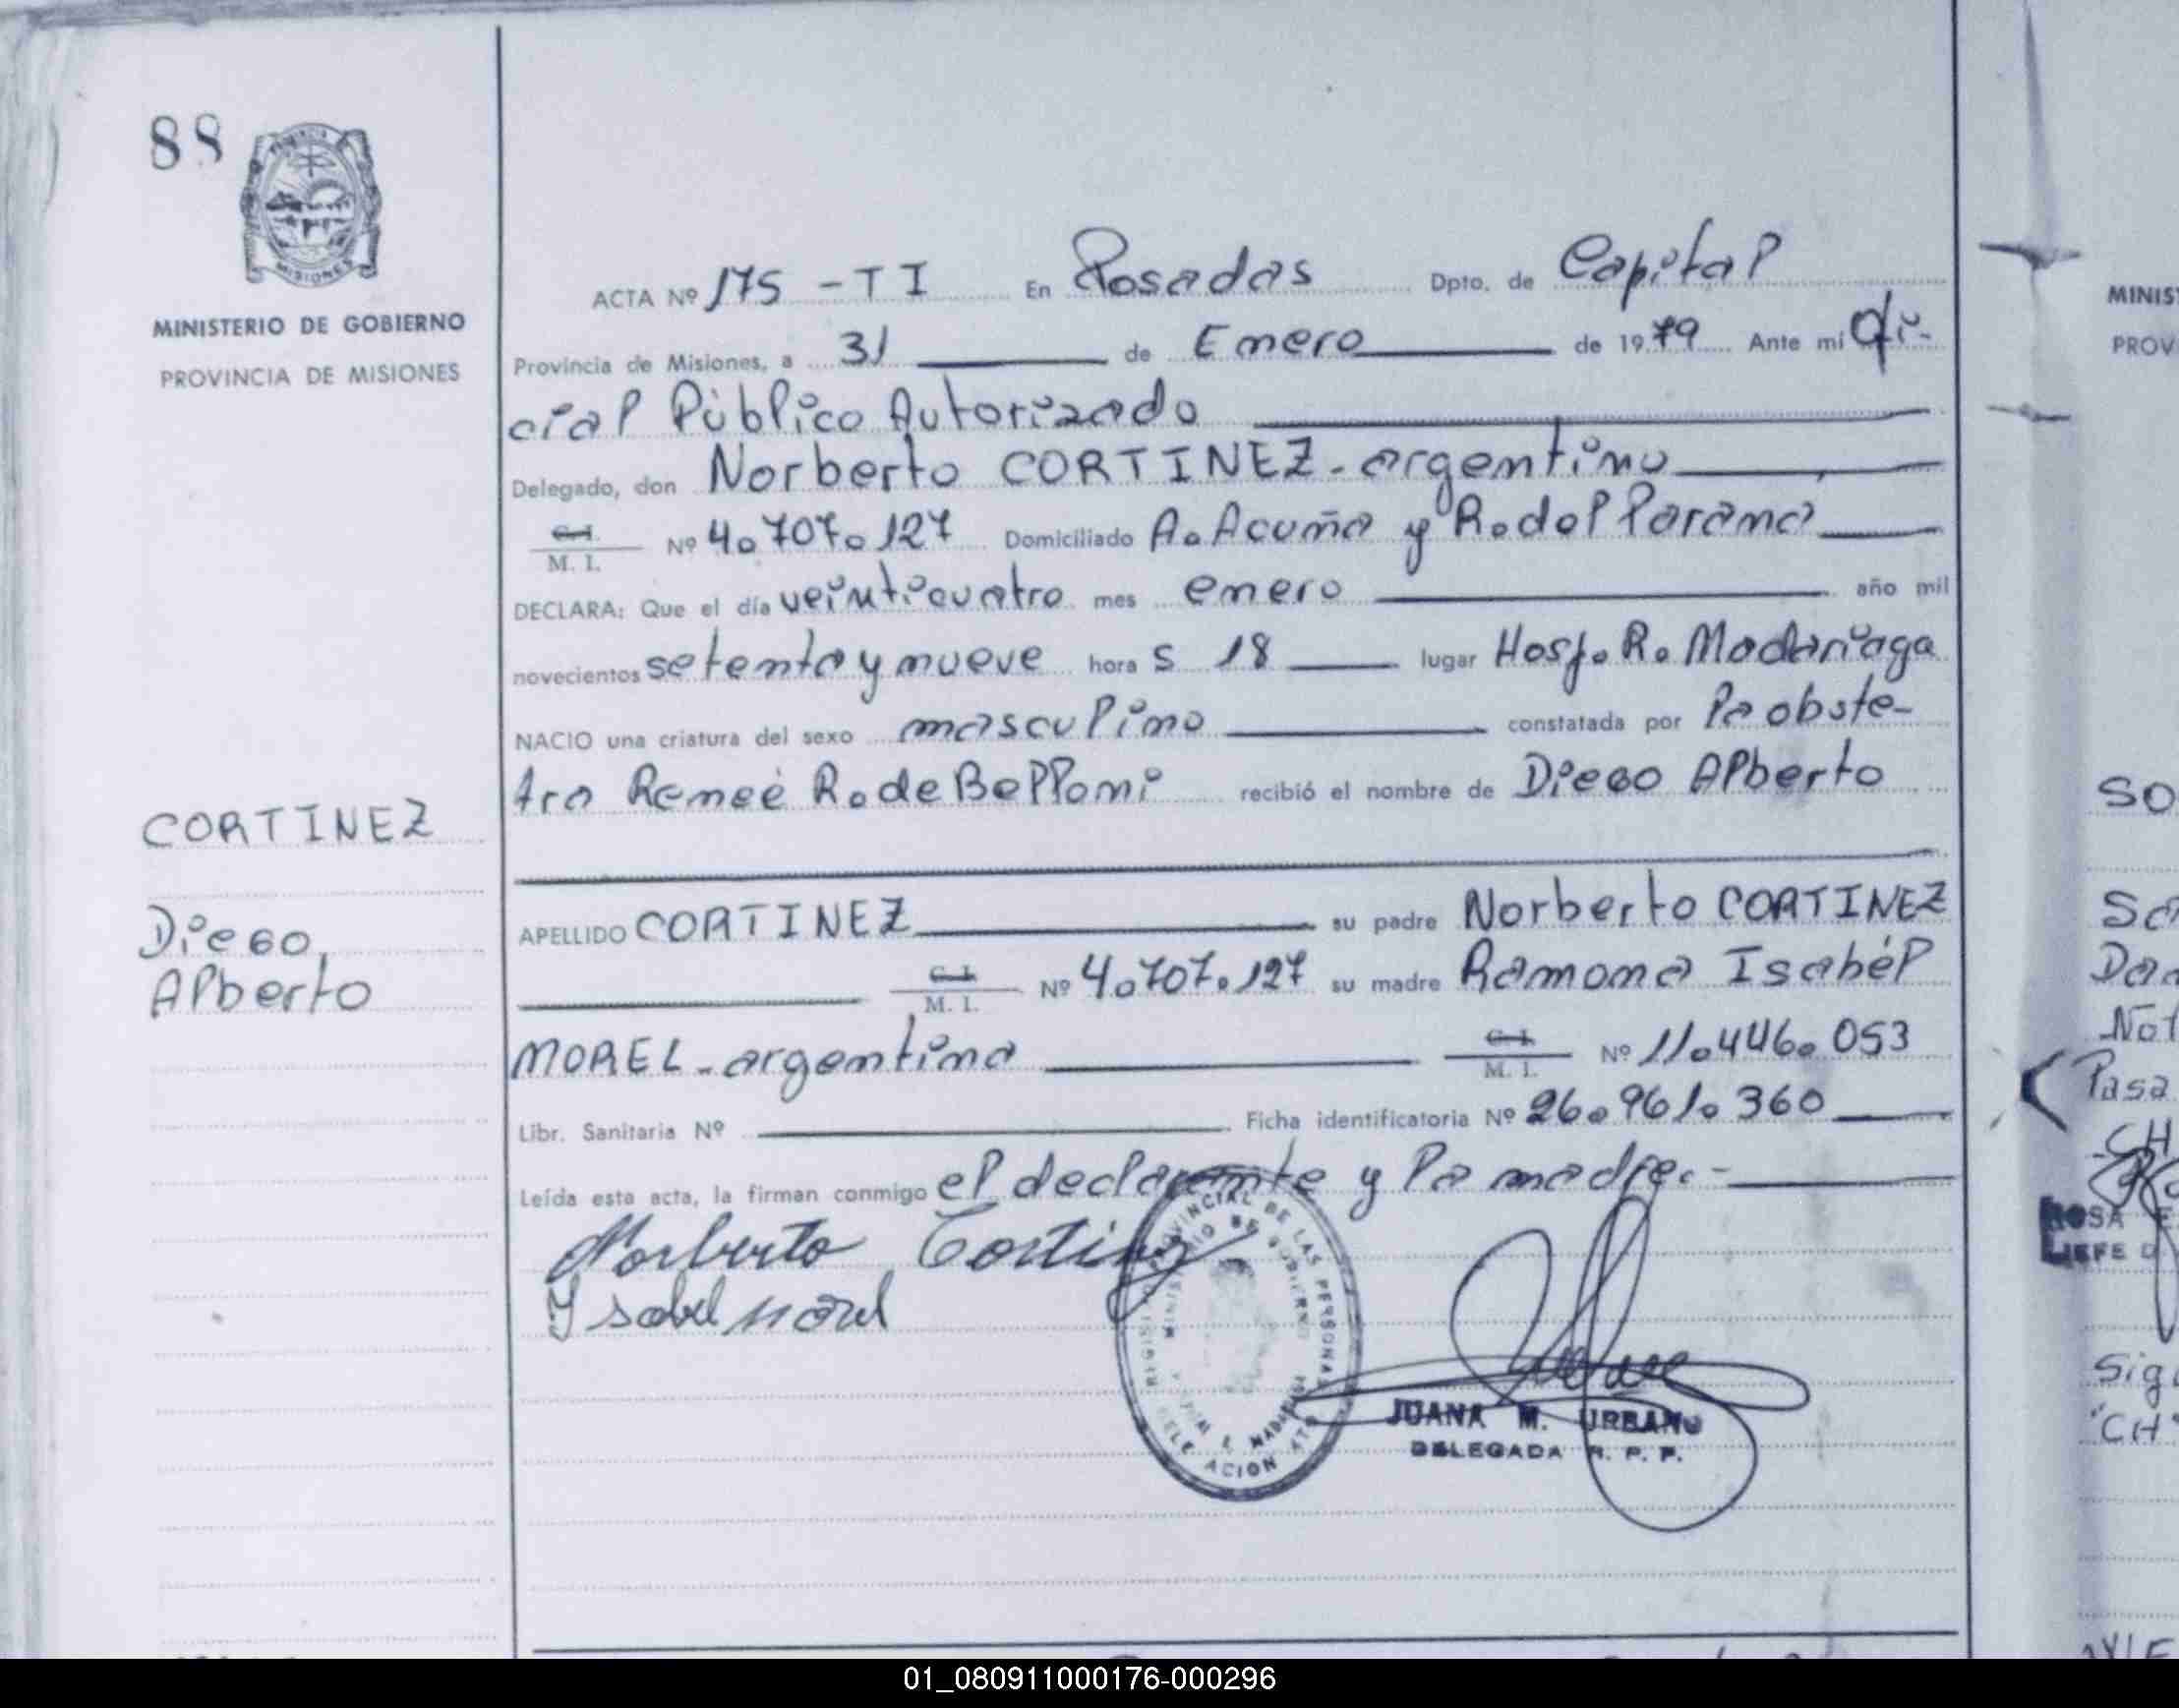 88
PROVINCIA
MISIONES
MINISTERIO DE GOBIERNO
PROVINCIA DE MISIONES
CORTINEZ
Diego
Alberto
ACTA Nº 175 - T I En Posadas Dpto. de Capital
Provincia de Misiones, a 31 de Enero de 1979 Ante mi Ofi-
cial Público Autorizado
Delegado, don Norberto CORTINEZ - argentino
C. I.
M. I. Nº 4.707.127 Domiciliado A. Acuña y R. del Parana
DECLARA: Que el día veinticuatro mes enero año mil
novecientos setenta y nueve hora s 18 lugar Hosp. R. Madariaga
NACIO una criatura del sexo masculino constatada por la obste-
tra Reneé R. de Belloni recibió el nombre de Diego Alberto
APELLIDO CORTINEZ su padre Norberto CORTINEZ
C. I.
M. I. Nº 4.707.127 su madre Ramona Isabél
MOREL - argentina C. I.
M. I. Nº 11.446.053
Libr. Sanitaria Nº Ficha identificatoria Nº 26.961.360
Leída esta acta, la firman conmigo el declarante y la madre.-
Norberto Cortinez
Ysabel Morel
PROVINCIAL DE LAS PERSONAS
JUANA M. URBANO
DELEGADA R. P. P.
MINIS
PROV
SO
Not
Pasa
CH
ROSA
JEFE D
Sig
"CH"
01_080911000176-000296